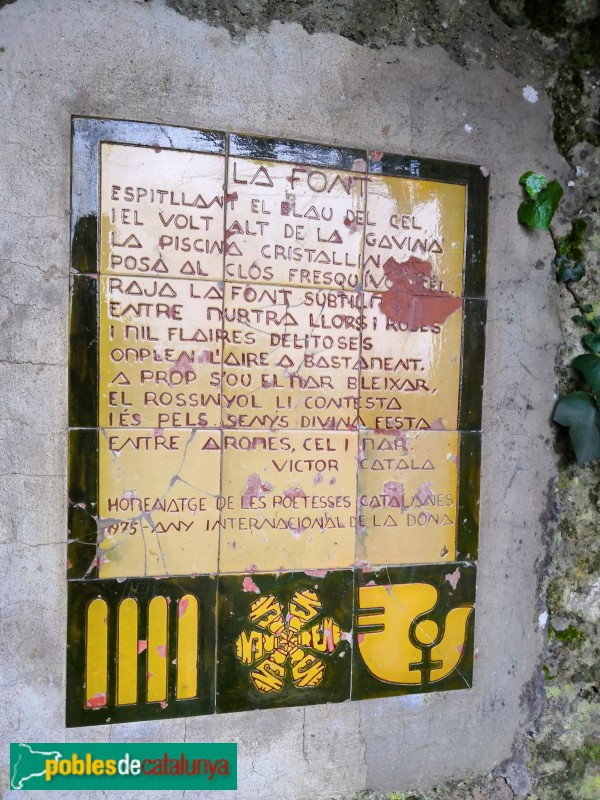 LA FONT
ESPITLLANT EL BLAU DEL CEL
I EL VOLT ALT DE LA GAVINA
LA PISCINA CRISTALLINA
POSA AL CLOS FRESQUÍVOL
RAJA LA FONT SUBTILMENT
ENTRE MURTRA LLORS I ROSES
I MIL FLAIRES DELITOSES
OMPLEN L'AIRE A BASTAMENT.
A PROP S'OU EL MAR BLEIXAR,
EL ROSSINYOL LI CONTESTA
I ÉS PELS SENYS DIVINA FESTA
ENTRE AROMES, CEL I MAR.
VICTOR CATALA
HOMENATGE DE LES POETESSES CATALANES
1975-ANY INTERNACIONAL DE LA DONA
poblesdecatalunya